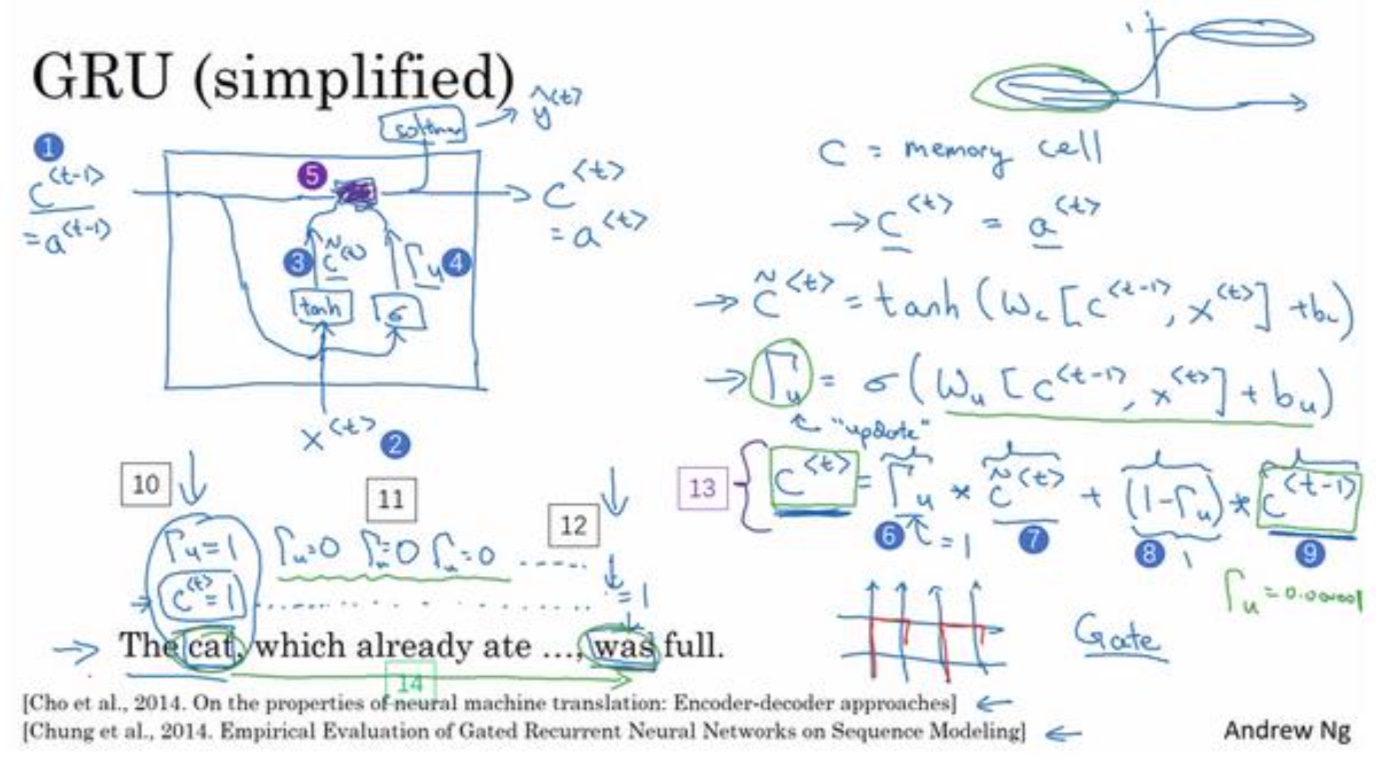 GRU (simplified)
1
c<t-1>
= a<t-1>
softmax → ŷ<t>
5
c<t>
= a<t>
3 c̃<t> Γu 4
tanh σ
x<t> 2
1
C = memory cell
→ c<t> = a<t>
→ c̃<t> = tanh (Wc [c<t-1>, x<t>] + bc)
→ Γu = σ (Wu [c<t-1>, x<t>] + bu)
"update"
13 c<t> = Γu * c̃<t> + (1-Γu) * c<t-1>
6 = 1 7 8 1 9
Γu = 0.000001
Gate
10 11 12
Γu=1 Γu=0 Γu=0 Γu=0 .....
c<t>=1 .......... =1
→ The cat, which already ate ..., was full.
14
[Cho et al., 2014. On the properties of neural machine translation: Encoder-decoder approaches] ←
[Chung et al., 2014. Empirical Evaluation of Gated Recurrent Neural Networks on Sequence Modeling] ←
Andrew Ng